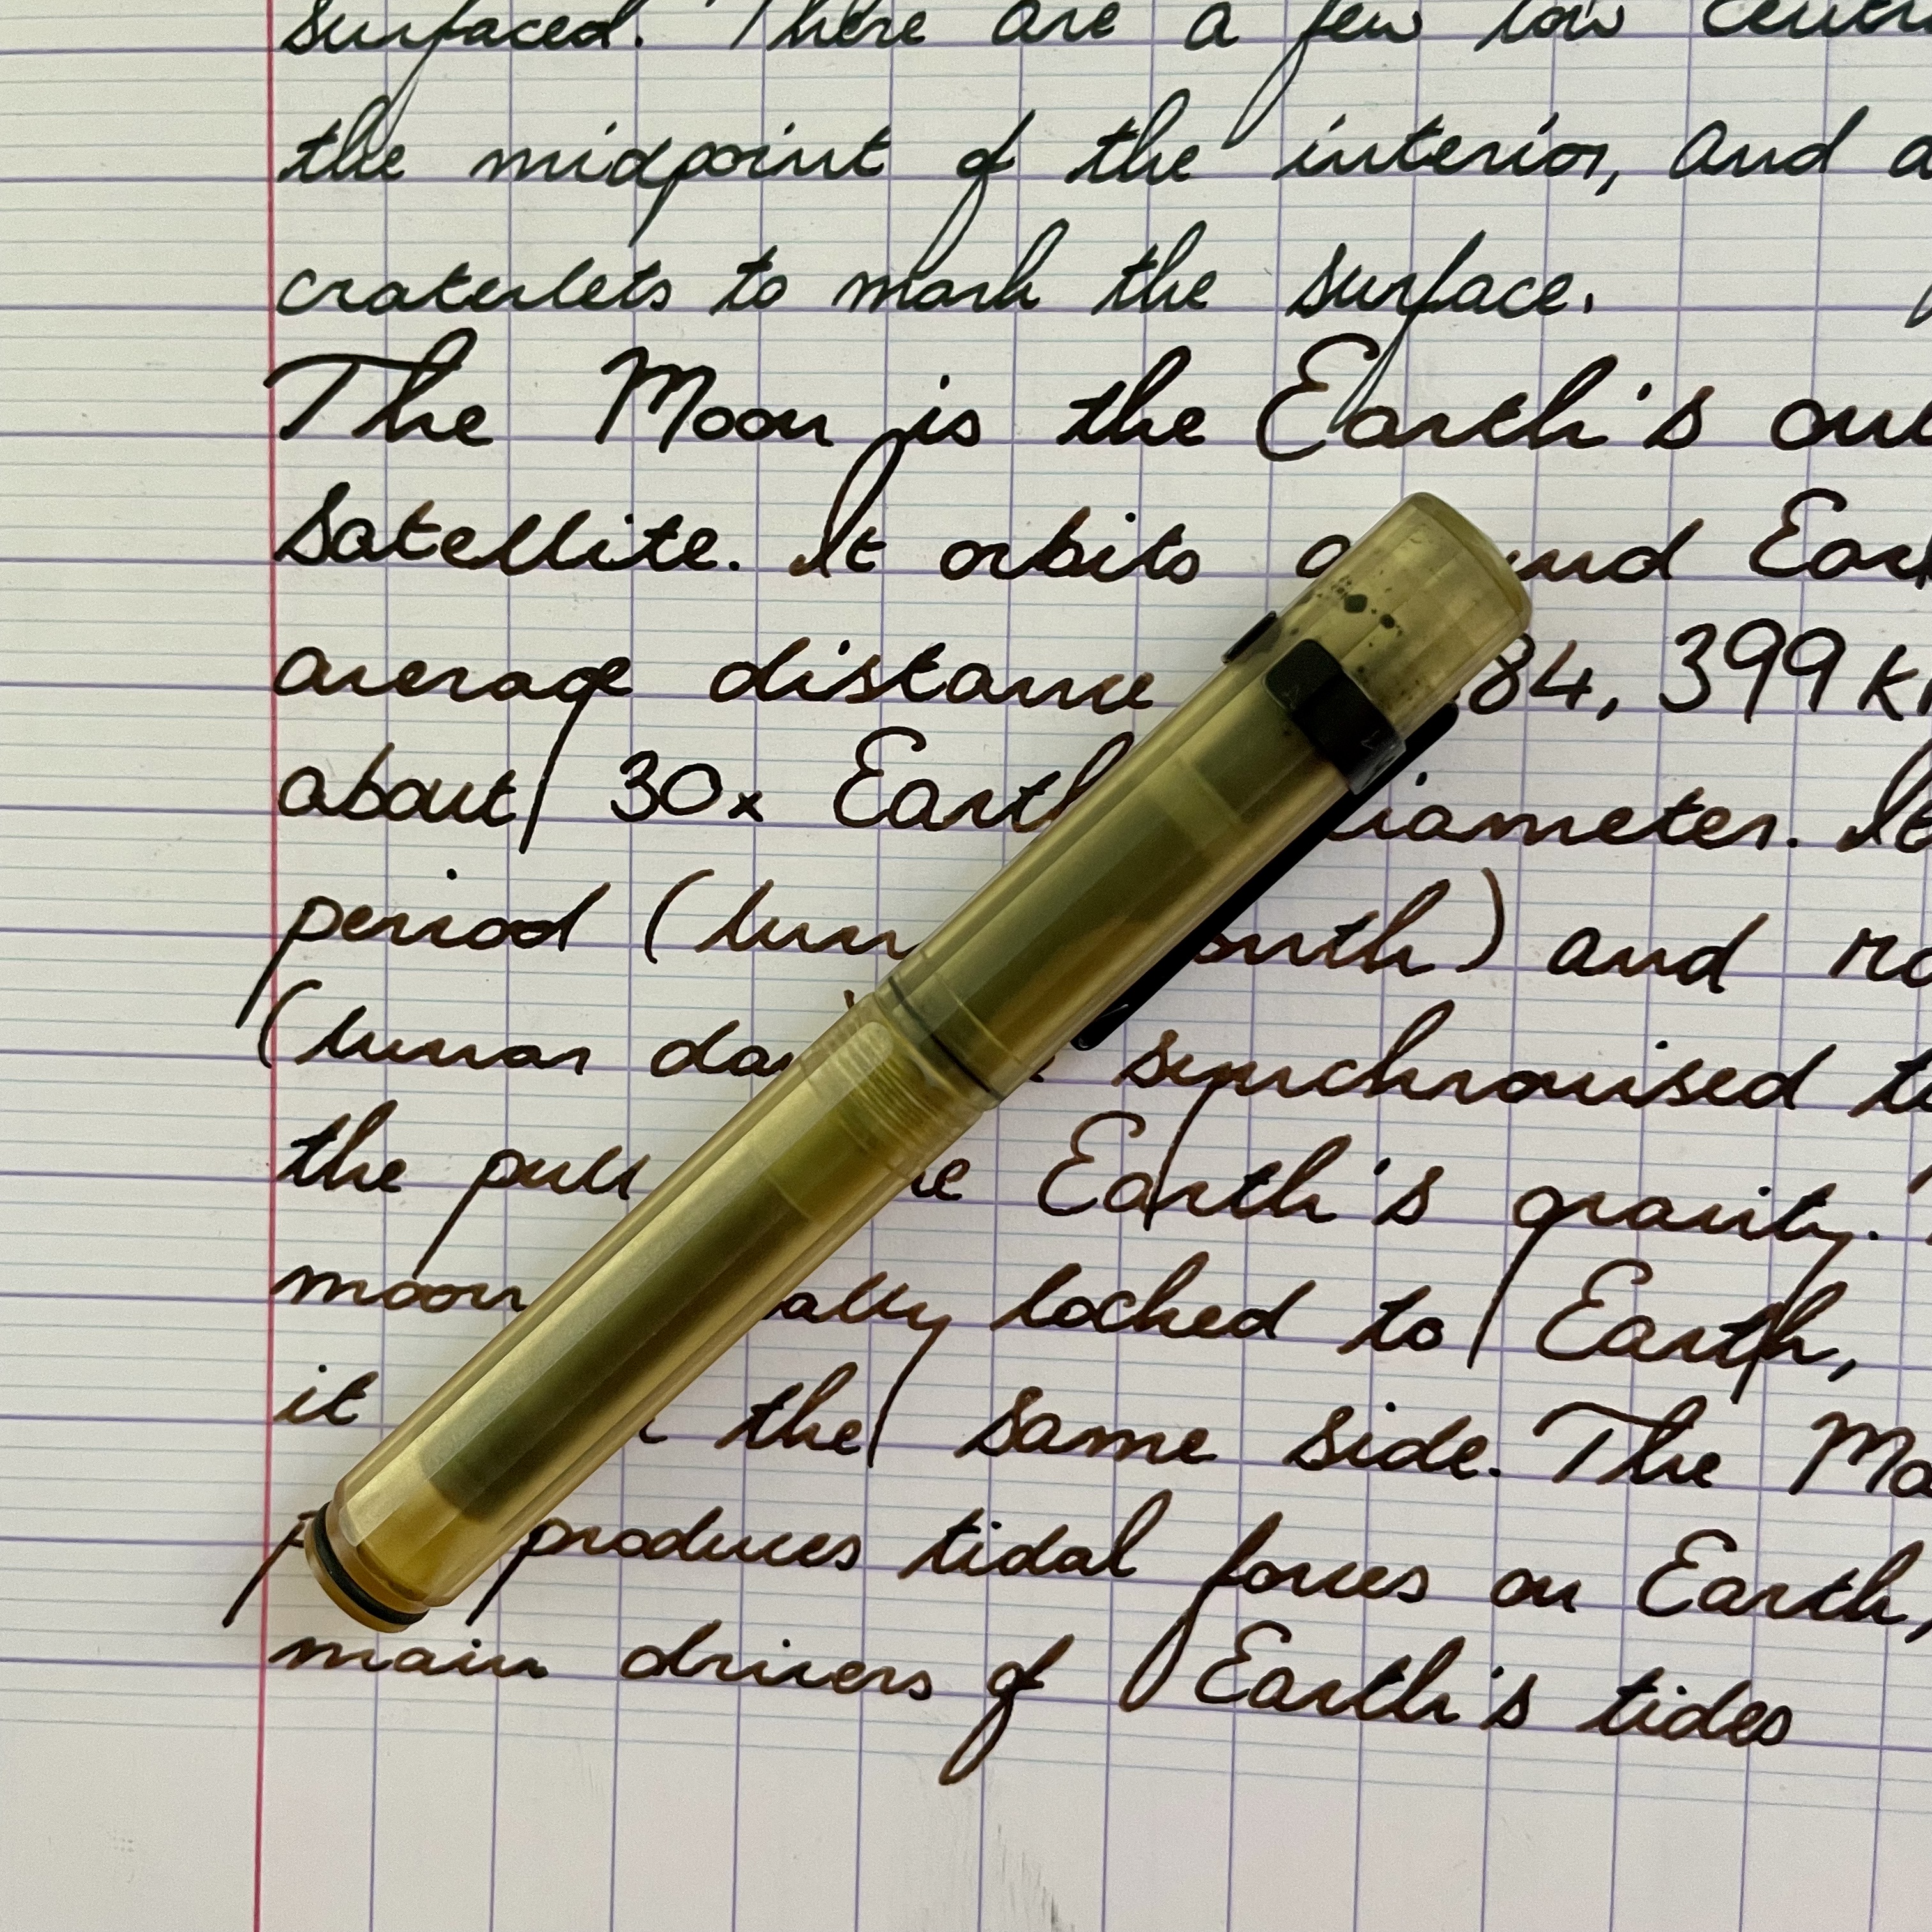 surfaced. There are a few low
the midpoint of the interior, and
craterlets to mark the surface.
The Moon is the Earth's
satellite. It orbits
average distance 84,399
about 30x
period ( ) and
(lunar synchronised
the pull Earth's gravity.
moon locked to Earth,
it the same side. The
produces tidal forces on Earth,
main drivers of Earth's tides